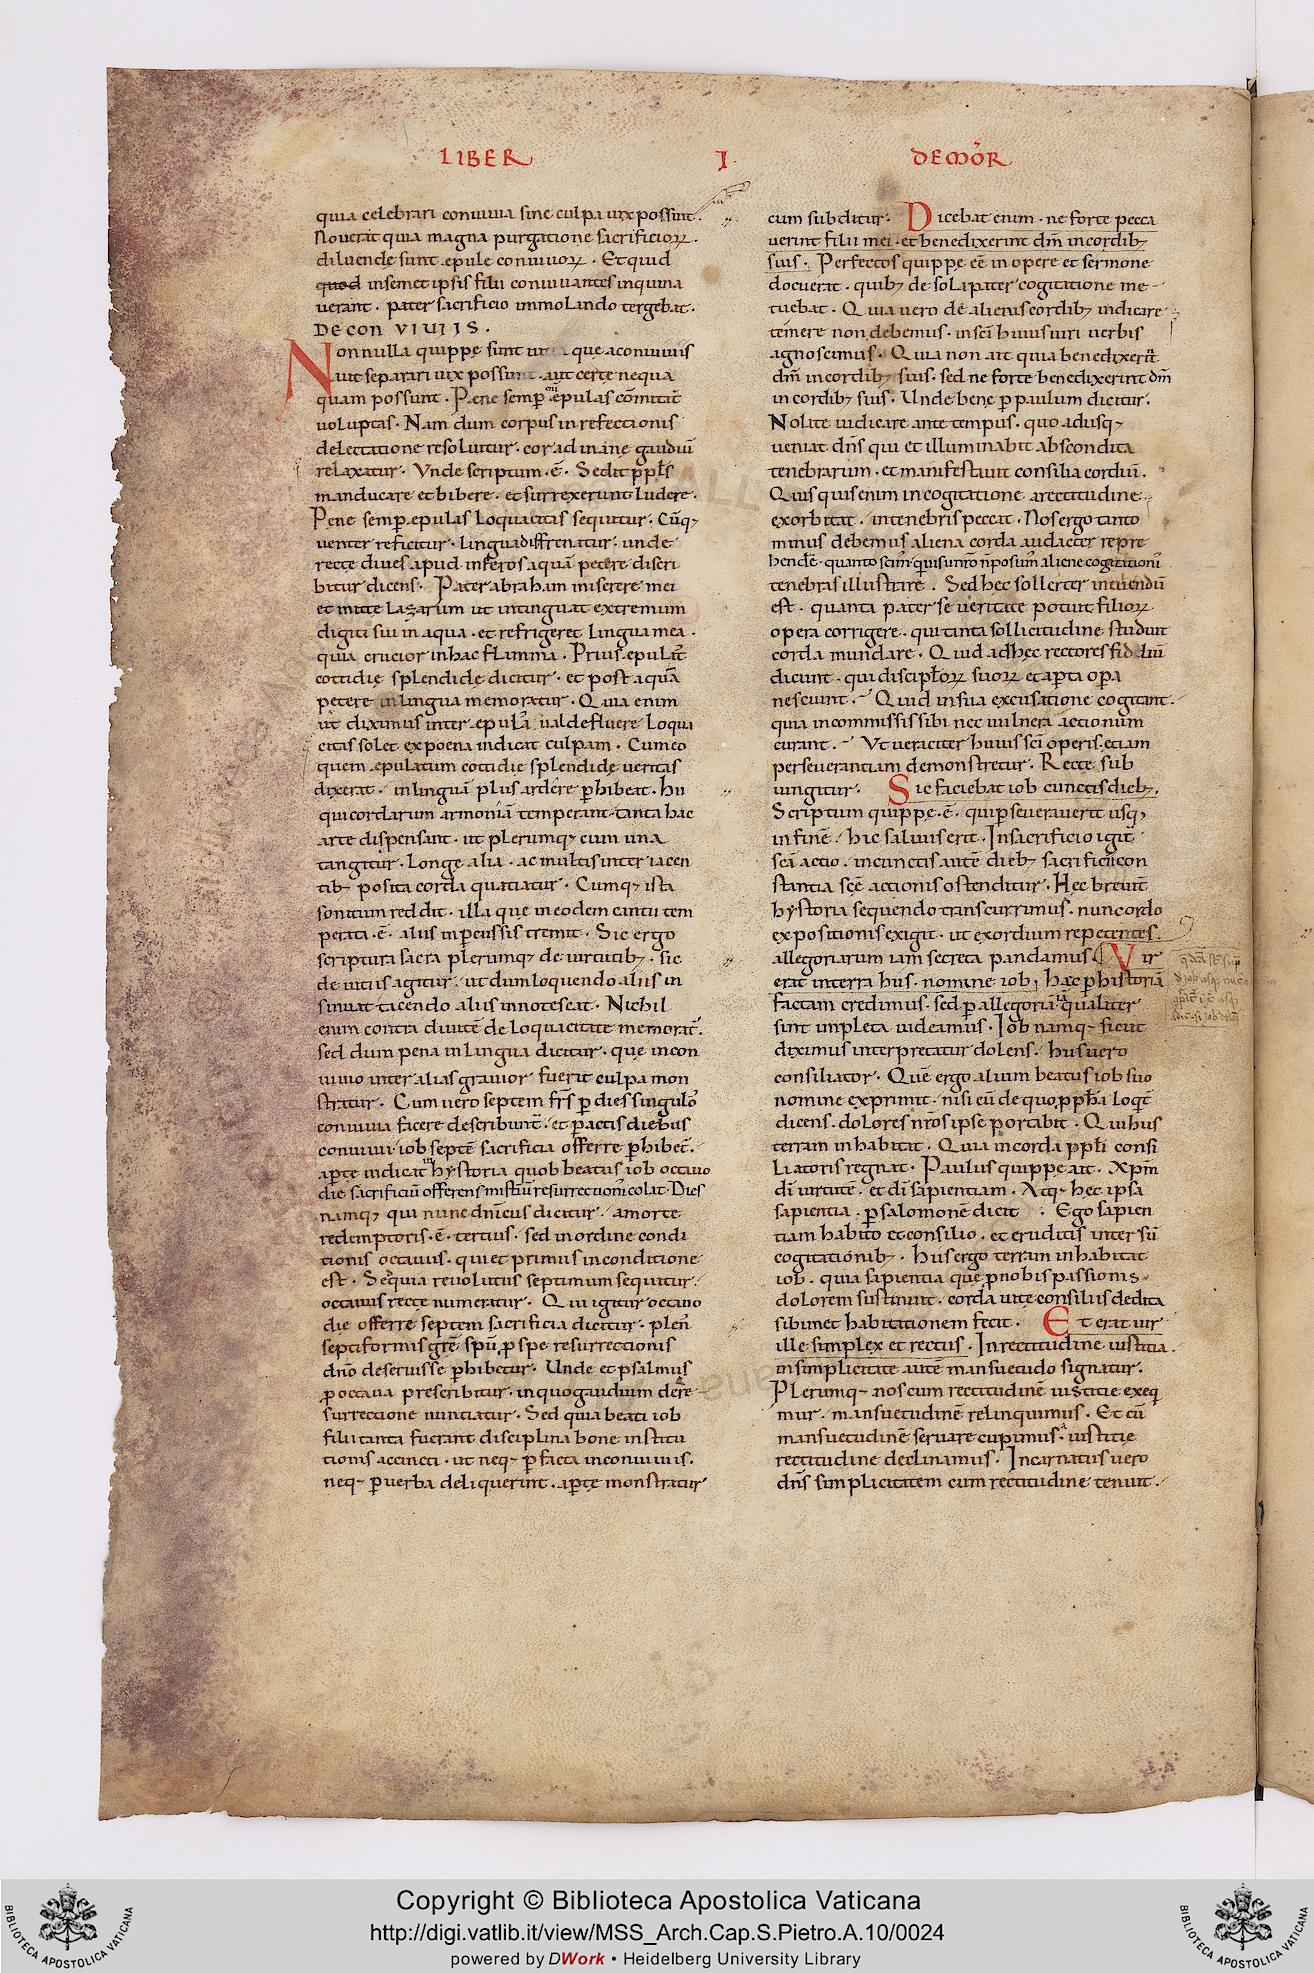 LIBER
I
DEMOR̄
quia celebrari conuiuia sine culpa uix possunt.
Nouerat quia magna purgatione sacrificioꝝ.
diluendę sunt epule conuiuioꝝ. Et quid
quod in semet ipsis filii conuiuantes inquina
uerant. pater sacrificio immolando tergebat.
DE CON VIVIIS.
Nonnulla quippe sunt que a conuiuiis
aut separari uix possunt. aut certe nequa
quam possunt. Pene semꝑ epulas cōmitat᷑
uoluptas. Nam dum corpus in refectionis
delectatione resoluitur. cor ad inane gaudiū
relaxatur. Vnde scriptum. ē. Sedit ppl̄s
manducare et bibere. et surrexerunt ludere.
Pene semꝑ epulas loquacitas sequitur. Cūqꝫ
uenter reficitur. lingua diffrenatur. unde
recte diues apud inferos aquā petere descri
bitur dicens. Pater abraham miserere mei
et mitte lazarum ut intinguat extremum
digiti sui in aqua. et refrigeret lingua mea.
quia crucior in hac flamma. Prius epulat᷑
cottidie splendide dicitur. et post aquā
petere in lingua memoratur. Quia enim
ut diximus inter epulas ualde fluere loqua
citas solet ex poena indicat culpam. Cum eo
quem epulatum cottidie splendide ueritas
dixerat. in linguā plus ardere ꝑhibeat. Hii
qui cordarum armoniā temperant. tanta hac
arte dispensant. ut plerumqꝫ cum una
tangitur. longe alia. ac multis inter iacen
tibꝫ posita corda quatiatur. Cumqꝫ ista
sonitum reddit. illa que in eodem cantu tem
perata. ē. aliis inpercussis tremit. Sic ergo
scriptura sacra plerumqꝫ de uirtutibꝫ. sic
de uitiis agitur. ut dum loquendo aliis in
sinuat tacendo aliis innotescat. Nichil
enim contra diuitē de loquacitate memorat᷑.
sed dum pena in lingua dicitur. que in con
uiuio inter alias grauior fuerit culpa mon
stratur. Cum uero septem fr̄s ꝑ dies singulos
conuiuia facere describunt᷑. et ꝑactis diebus
conuiuii. iob septē sacrificia offerre ꝑhibet᷑.
aꝑte indicat hystoria quob beatus iob octauo
die sacrificiū offerens misteriū resurrectionis colit. Dies
namqꝫ qui nunc dn̄icus dicitur. a morte
redemptoris. ē. tertius. sed in ordine condi
tionis octauus. qui et primus in conditione
est. Sequia reuolutus septimum sequitur.
octauus recte numeratur. Qui igitur octauo
die offerre septem sacrificia dicitur. plen̄
septiformis grē spū. ꝓ spe resurrectionis
dn̄o deseruisse ꝑhibetur. Unde et psalmus
ꝓ octaua prescribitur. in quo gaudium de re
surrectione nuntiatur. Sed quia beati iob
filii tanta fuerant disciplina bone institu
tionis accincti. ut neqꝫ ꝑ facta in conuiuiis.
neqꝫ ꝑ uerba deliquerint. aꝑte monstratur
cum subditur. Dicebat enim. ne forte pecca
uerint filii mei. et benedixerint dm̄ in cordibꝫ
suis. Perfectos quippe eē in opere et sermone
docuerat. quibꝫ de sola pater cogitatione me
tuebat. Quia uero de alienis cordibꝫ iudicare
temere non debemus. in sc̄i huius uiri uerbis
agnoscimus. Quia non ait quia benedixerūt
dm̄ in cordibꝫ suis. sed ne forte benedixerint dm̄
in cordibꝫ suis. Unde bene ꝑ paulum dicitur.
Nolite iudicare ante tempus. quo adusqꝫ
ueniat dn̄s qui et illuminabit abscondita
tenebrarum. et manifestauit consilia cordiū.
Quis quis enim in cogitatione a rectitudine
exorbitat. in tenebris peccat. Nos ergo tanto
minus debemus aliena corda audacter repre
hendere. quanto scim᷒ quia uisu nr̄o n̄ possum᷒ aliene cogitationi᷒
tenebras illustrare. Sed hec sollerter intuendū
est. quanta pater seueritate potuit filioꝝ
opera corrigere. qui tanta sollicitudine studuit
corda mundare. Quid ad hęc rectores fideliū
dicunt. qui discipl̄oꝝ suoꝝ et aꝑta oꝑa
nesciunt. Quid in sua excusatione cogitant.
quia in commissis sibi nec uulnera actionum
curant. Vt ueraciter huius sc̄i operis. etiam
perseuerantiam demonstretur. Recte sub
iungitur. Sic faciebat iob cunctis diebꝫ.
Scriptum quippe. ē. qui ꝑseuerauerit usqꝫ
in finē. hic saluus erit. In sacrificio igit᷑
sc̄a actio. in cunctis autē diebꝫ sacrificii con
stantia sc̄ę actionis ostenditur. Hęc breuit᷑
hystoria sequendo transcurrimus. nunc ordo
expositionis exigit. ut exordium repetentes.
allegoriarum iam secreta pandamus. Vir
erat in terra hus. nomine iob. hęc ꝑ historiā
factam credimus. sed ꝑ allegoriā qualiter
sint impleta uideamus. Iob namqꝫ sicut
diximus interpretatur dolens. hus uero
consiliator. Quē ergo alium beatus iob suo
nomine exprimit. nisi eū de quo ꝓph̄a loq̄t᷑
dicens. dolores nr̄os ipse portabit. Qui hus
terram inhabitat. Quia in corda ppl̄i consi
liatoris regnat. Paulus quippe ait. Xpm̄
dī uirtutē. et dī sapientiam. Atqꝫ hec ipsa
sapientia. ꝑ salomonē dicit. Ego sapien
tiam habito et consilio. et eruditis intersū
cogitationibꝫ. Hus ergo terram inhabitat
iob. quia sapientia que ꝓ nobis passionis
dolorem sustinuit. corda uite consiliis dedita
sibimet habitationem fecit. Et erat uir
ille simplex et rectus. In rectitudine iustitia.
in simplicitate autē mansuetudo signatur.
Plerumqꝫ nos cum rectitudinē iustitie exeq̄
mur. mansuetudinē relinquimus. Et cū
mansuetudinē seruare cupimus. a iustitie
rectitudine declinamus. Incarnatus uero
dn̄s simplicitatem cum rectitudine tenuit.
Copyright © Biblioteca Apostolica Vaticana
http://digi.vatlib.it/view/MSS_Arch.Cap.S.Pietro.A.10/0024
powered by DWork • Heidelberg University Library
BIBLIOTECA APOSTOLICA VATICANA
BIBLIOTECA APOSTOLICA VATICANA